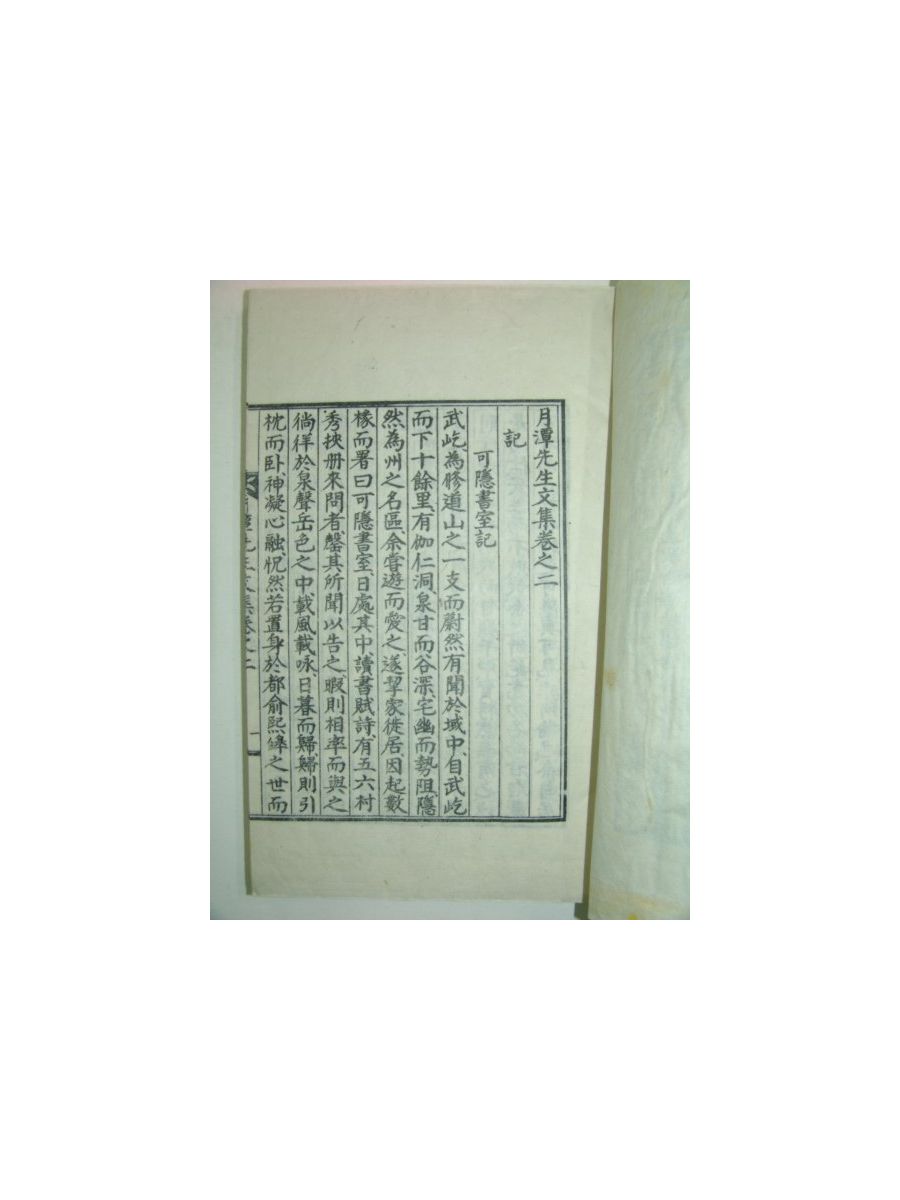 月潭先生文集卷之二
記
可隱書室記
武屹、為修道山之一支而蔚然有聞於域中、自武屹
而下十餘里、有伽仁洞、泉甘而谷深、宅幽而勢阻、隱
然為州之名區、余嘗遊而愛之、遂挈家徙居、因起數
椽而署曰可隱書室、日處其中、讀書賦詩、有五六村
秀挾冊來問者、罄其所聞以告之、暇則相率而與之
徜徉於泉聲岳色之中、載風載咏、日暮而歸、歸則引
枕而卧、神凝心融、怳然若置身於都俞熙皞之世而
月潭先生文集卷之二 一